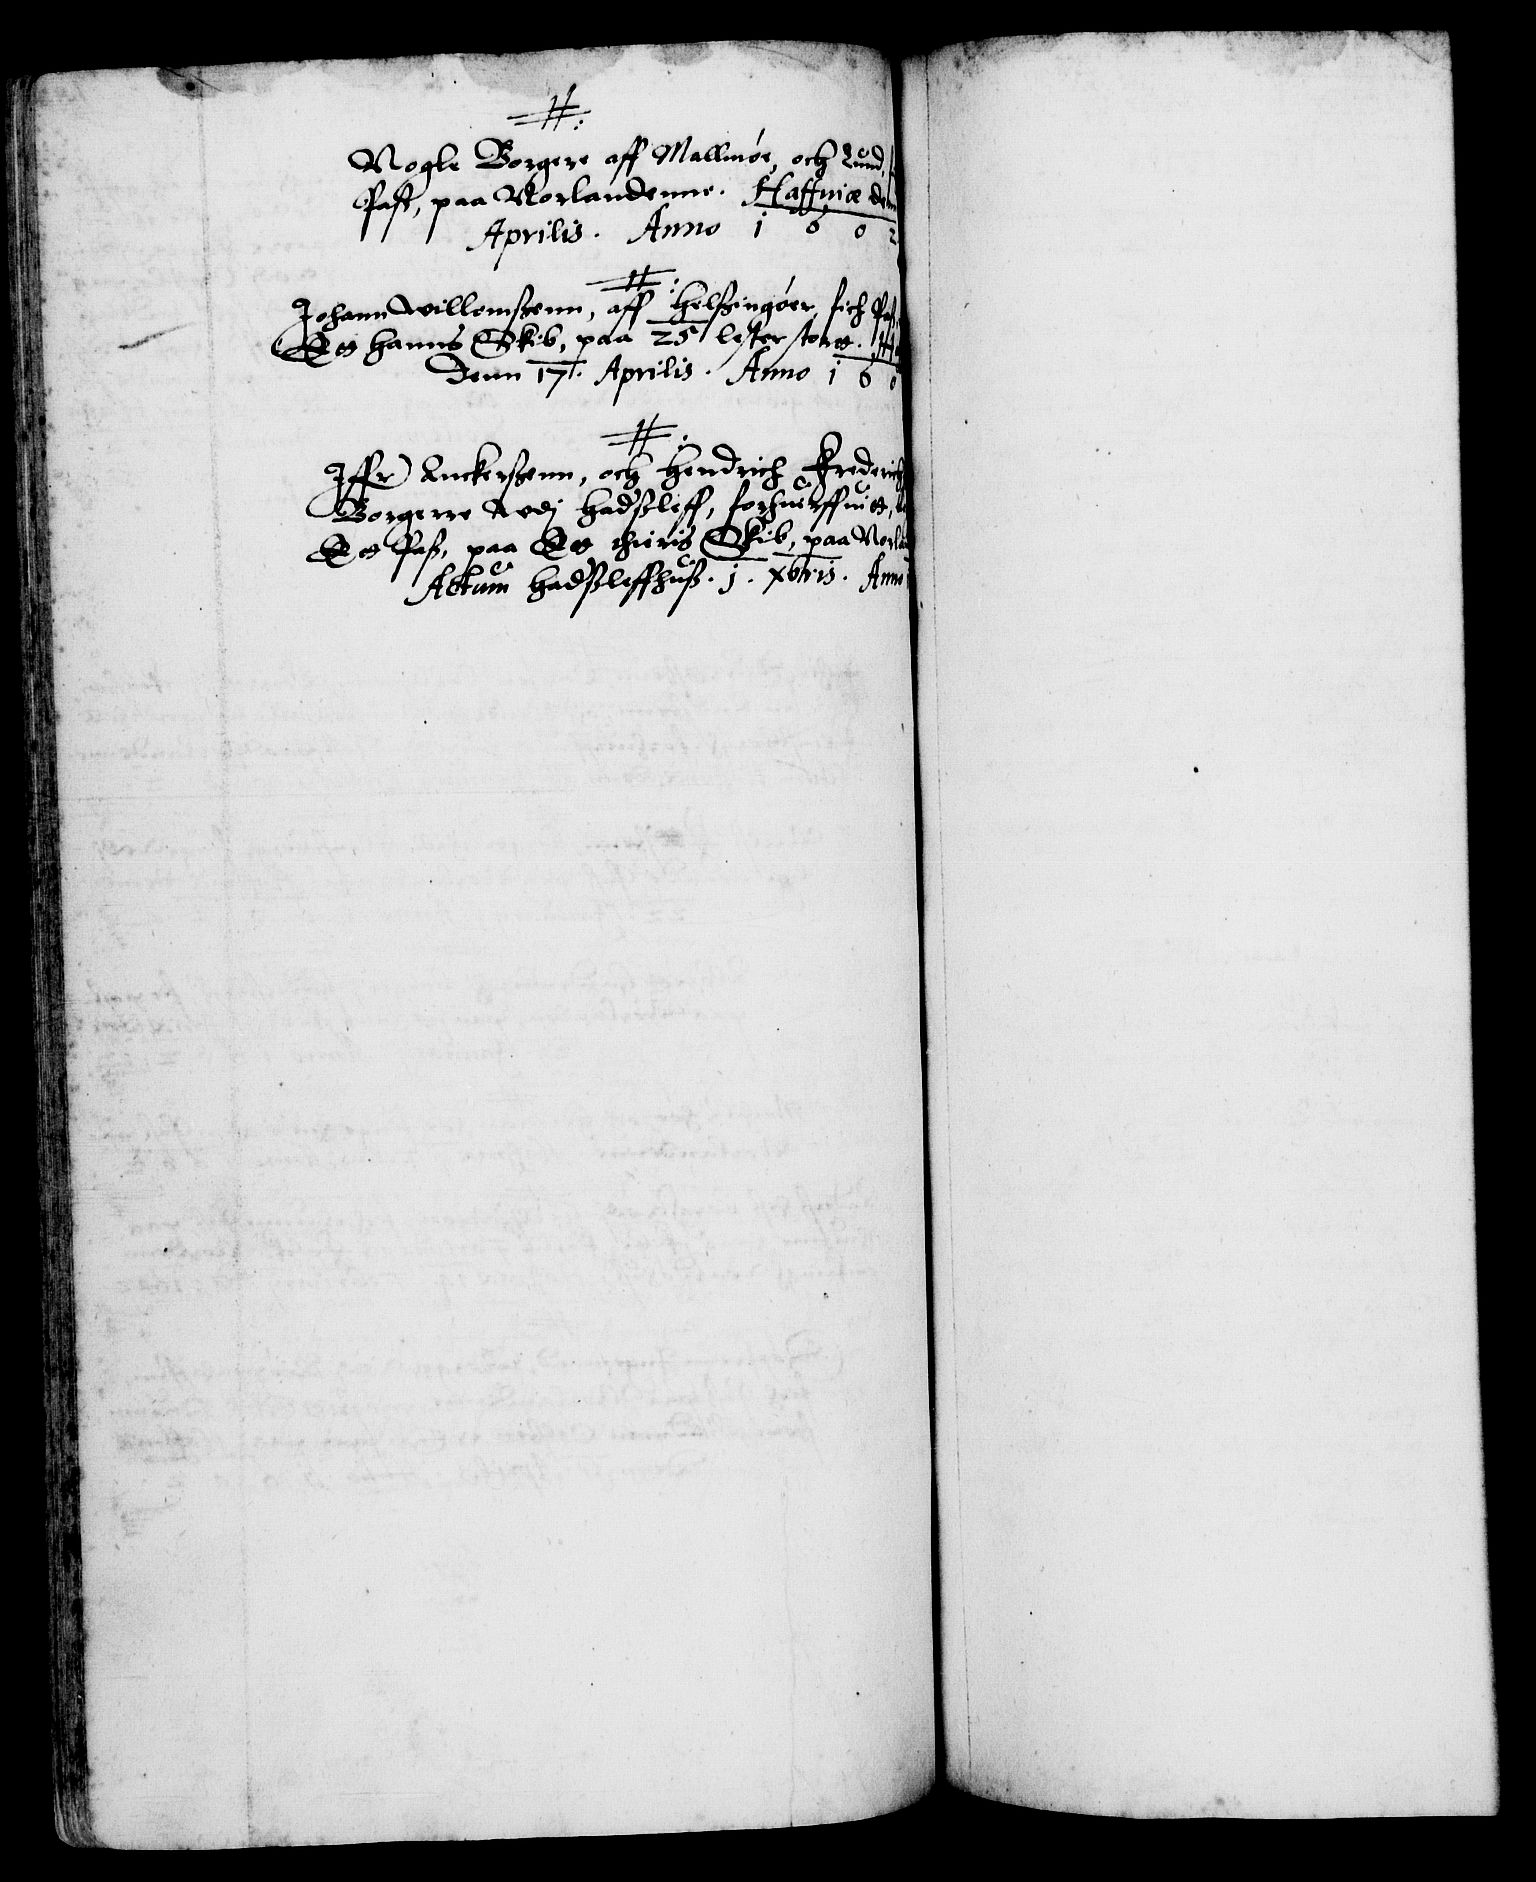 Nogle Borgere aff Mallmøe, och Lund,
Past, paa Norlandenne. Haffniæ den
Aprilis. Anno 1 6 0 2
Johann Willomßenn, aff Helßingøer, fich Paß,
Et hanns Skib, paa 25 lester store.
Denn 17. Aprilis. Anno 1 6 0
Iffr) Anckerßenn, och Hendrich Frederich
Borgerre Vdj Hadßleff, forhuerffuit,
Et Paß, paa Et thieris Skib, paa Norlan
Actum Hadßleffhuß. j. xbris. Anno